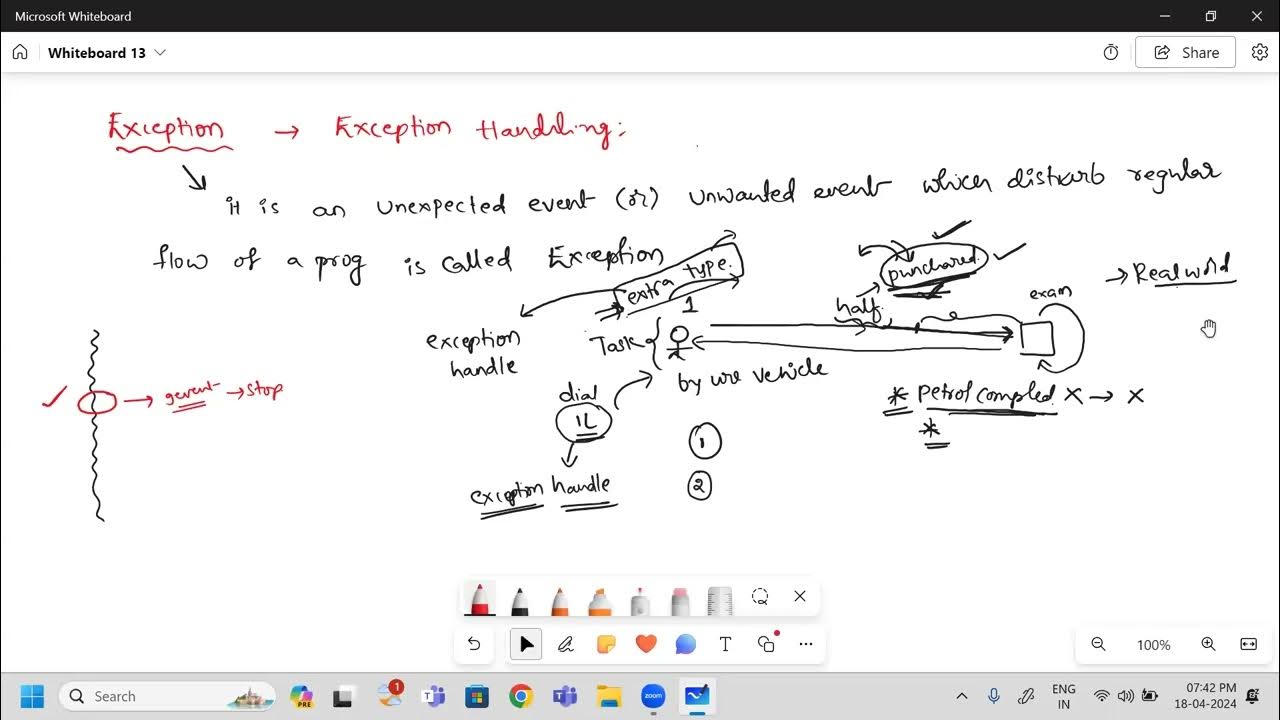 Microsoft Whiteboard
Whiteboard 13
Share
Exception → Exception Handling:
it is an unexpected event (or) unwanted event which disturb regular
flow of a prog is called Exception
extra type.
1
punchared
→ Real world
half
exam
exception
handle
Task
by use vehicle
✓ → → stop
dial
1L
* Petrol compled X → X
*
1
exception handle
2
100%
Search
PRE
1
zoom
ENG
IN
07:42 PM
18-04-2024